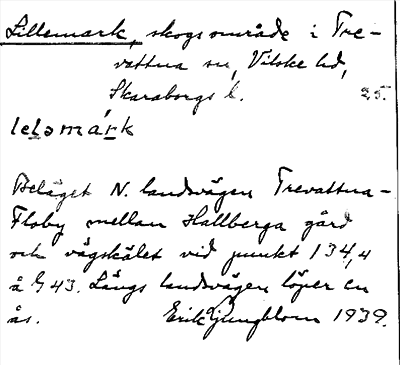 Lillemark, skogsområde i Tre-
vattna sn, Vilske hd,
Skaraborgs l. 25.
leləmárk
Beläget N. landsvägen Trevattna-
Floby mellan Hallberga gård
och vägskälet vid punkt 134,4
å G 43. Längs landsvägen löper en
ås. Erik Ljungblom 1939.